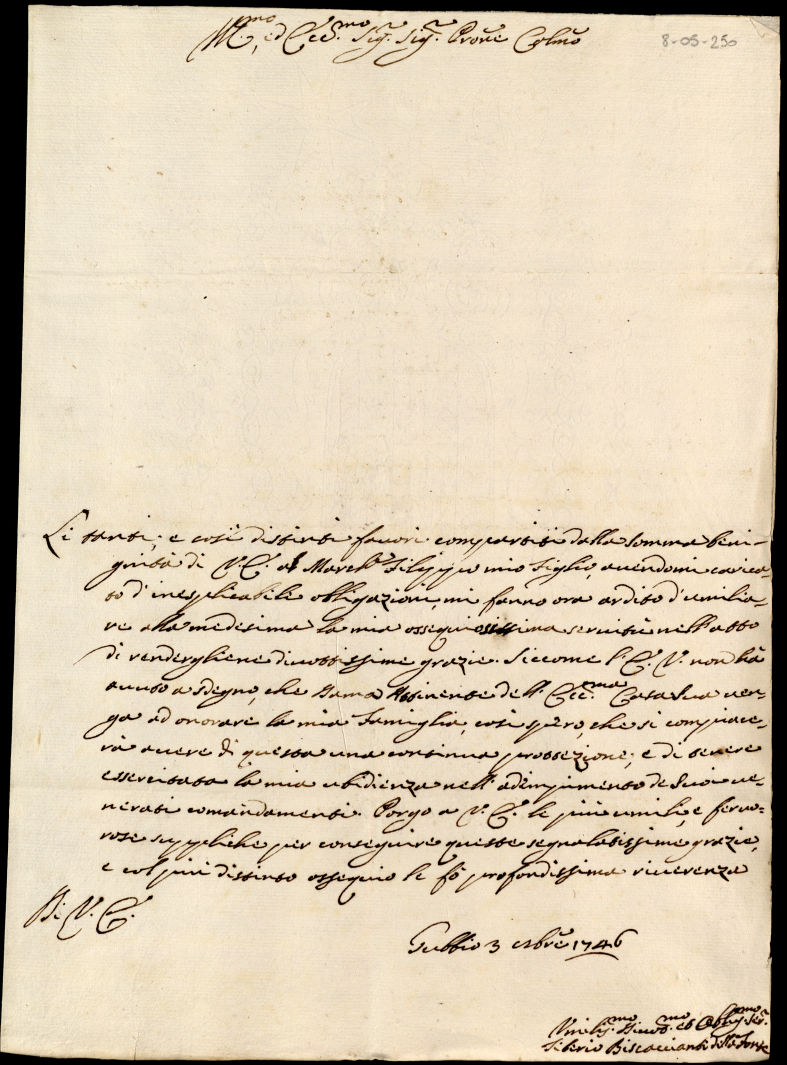 Ill.mo, ed Ecc.mo Sig.r Sig.r Prone Colmo
8-05-250
Li tanti, e così distinti favori compartiti dalla somma beni-
gnità di V. E. al March.e Filippo mio Figlio, avendomi carica-
to d'inesplicabili obbligazioni, mi fanno ora ardito d'umilia-
re alla medesima la mia ossequiosissima servitù nell'atto
di rendergliene divotissime grazie. Siccome l'E. V. non hà
avuto a sdegno, che Dama Attinente dell'Ecc.ma Casa Sua ven-
ga ad onorare la mia Famiglia, così spero, che si compiace-
rà avere di questa una continua protezione; e di tenere
essercitata la mia ubidienza nell'adempimento de Suoi ve-
nerati comandamenti. Porgo a V. E. le più umili, e fervo-
rose suppliche per conseguire queste segnalatissime grazie,
e col più distinto ossequio le fò profondissima riverenza
Di V. E.
Gubbio 3 1746
Umilis.mo Divot.mo et Obblig.mo Ser.r
Tiberio Biscaccianti della Torre